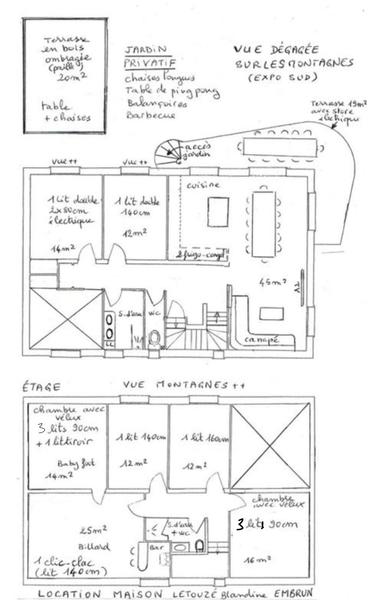 Terrasse
en bois
ombragée
(paille)
20m²
table
+ chaises
JARDIN
PRIVATIF
chaises longues
Table de ping pong
Balançoires
Barbecue
VUE DÉGAGÉE
SUR LES MONTAGNES
(EXPO SUD)
Terrasse 19m²
avec store
électrique
accès
jardin
vue++
vue++
1 lit double
2x80cm
électrique
14m²
1 lit double
140cm
12m²
cuisine
2 frigo-congel
45m²
S.d'eau
wc
canapé
ÉTAGE
VUE MONTAGNES ++
chambre avec
vélux
3 lits 90cm
+ 1 lit tiroir
Baby foot
14m²
1 lit 140cm
12m²
1 lit 160cm
12m²
chambre
avec vélux
3 lits 90cm
16m²
25m²
Billard
1 clic-clac
(lit 140cm)
Bar
S.d'eau
+ wc
LOCATION MAISON LETOUZÉ Blandine EMBRUN